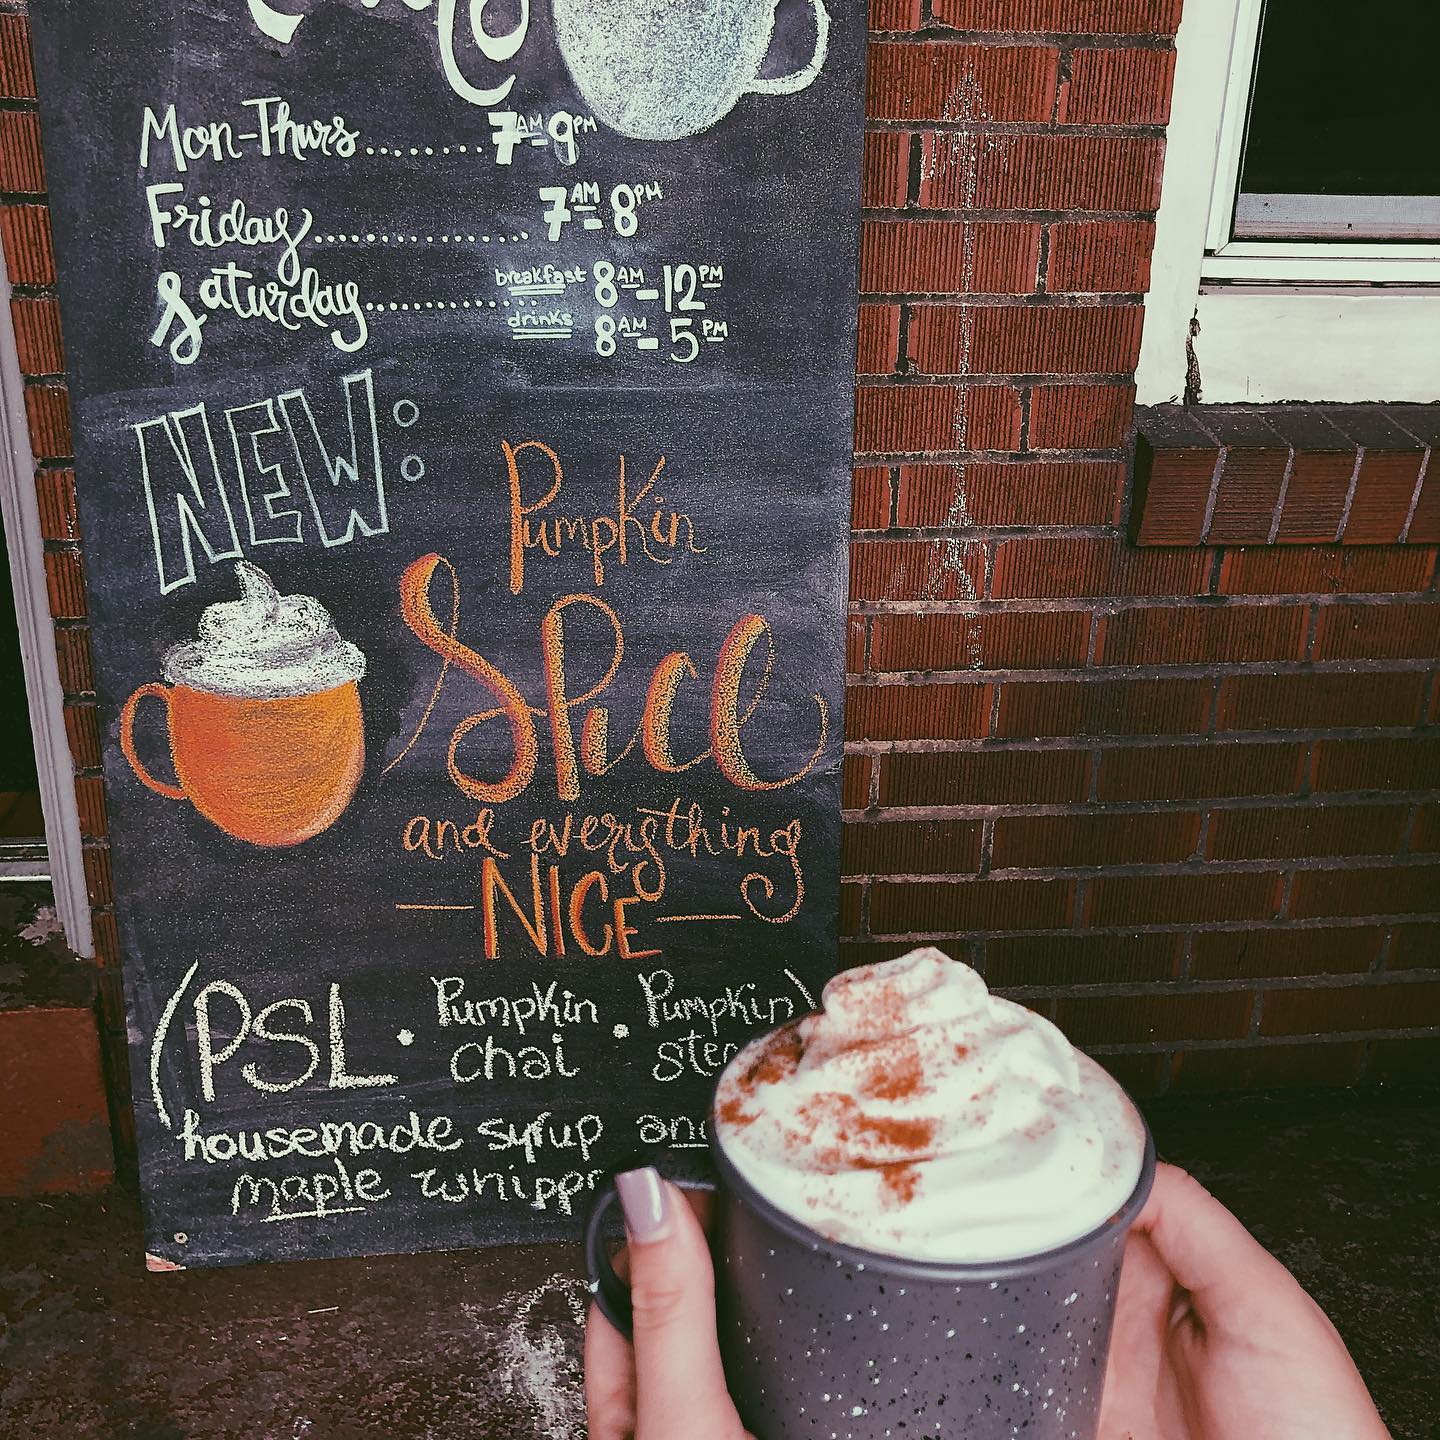 Mon-Thurs........7AM-9PM
Friday..............7AM-8PM
Saturday............breakfast 8AM-12PM
drinks 8AM-5PM
NEW:
Pumpkin
Spice
and everything
NICE
(PSL • Pumpkin chai • Pumpkin
housemade syrup and
maple